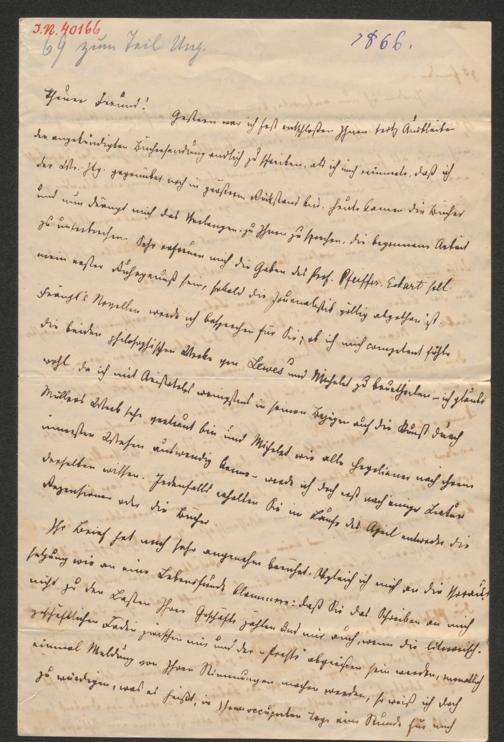 I.N. 40166
69 zum Teil Ung.
1866.
Theurer Freund! Gestern war ich fest entschlossen Ihnen trotz Ausbleiben
der angekündigten Büchersendung endlich zu schreiben, als ich mich erinnerte, daß ich
der Ztg. gegenüber noch in großem Rückstand bin. Heute kamen die Bücher
und nun drängt mich das Verlangen, zu Ihnen zu sprechen, die begonnene Arbeit
zu unterbrechen. Sehr erfreuen mich die Gaben des Prof. Pfeiffer. Eckart soll
mein erster Ruhegenuß sein, sobald die Journalistik völlig abgethan ist.
Frankl's Novellen werde ich besprechen für Sie; ob ich mich competent fühle
die beiden philosophischen Werke von Lewes und Michelet zu beurtheilen – ich glaube
wohl, da ich mit Aristoteles wenigstens in seinem Bezug auf die Kunst durch
Müllers Werk sehr vertraut bin und Michelet wie alle Hegelianer nach ihrem
innersten Wesen auswendig kenne – werde ich doch erst nach einiger Lectüre
derselben wissen. Jedenfalls erhalten Sie im Laufe des April entweder die
Rezensionen oder die Bücher.
Ihr Brief hat mich sehr angenehm berührt. Obgleich ich mich an die Voraus-
setzung wie an eine Lebensstunde klammere: daß Sie das Schreiben an mich
nicht zu den Lasten Ihres Geschäfts zählen und mir auch, wenn die literarisch-
geschäftlichen Fäden zwischen mir und der "Presse" abgerissen sein werden, monatlich
einmal Meldung von Ihren Stimmungen machen werden, so weiß ich doch
zu würdigen, was es heißt, im Tage eine Stunde für mich